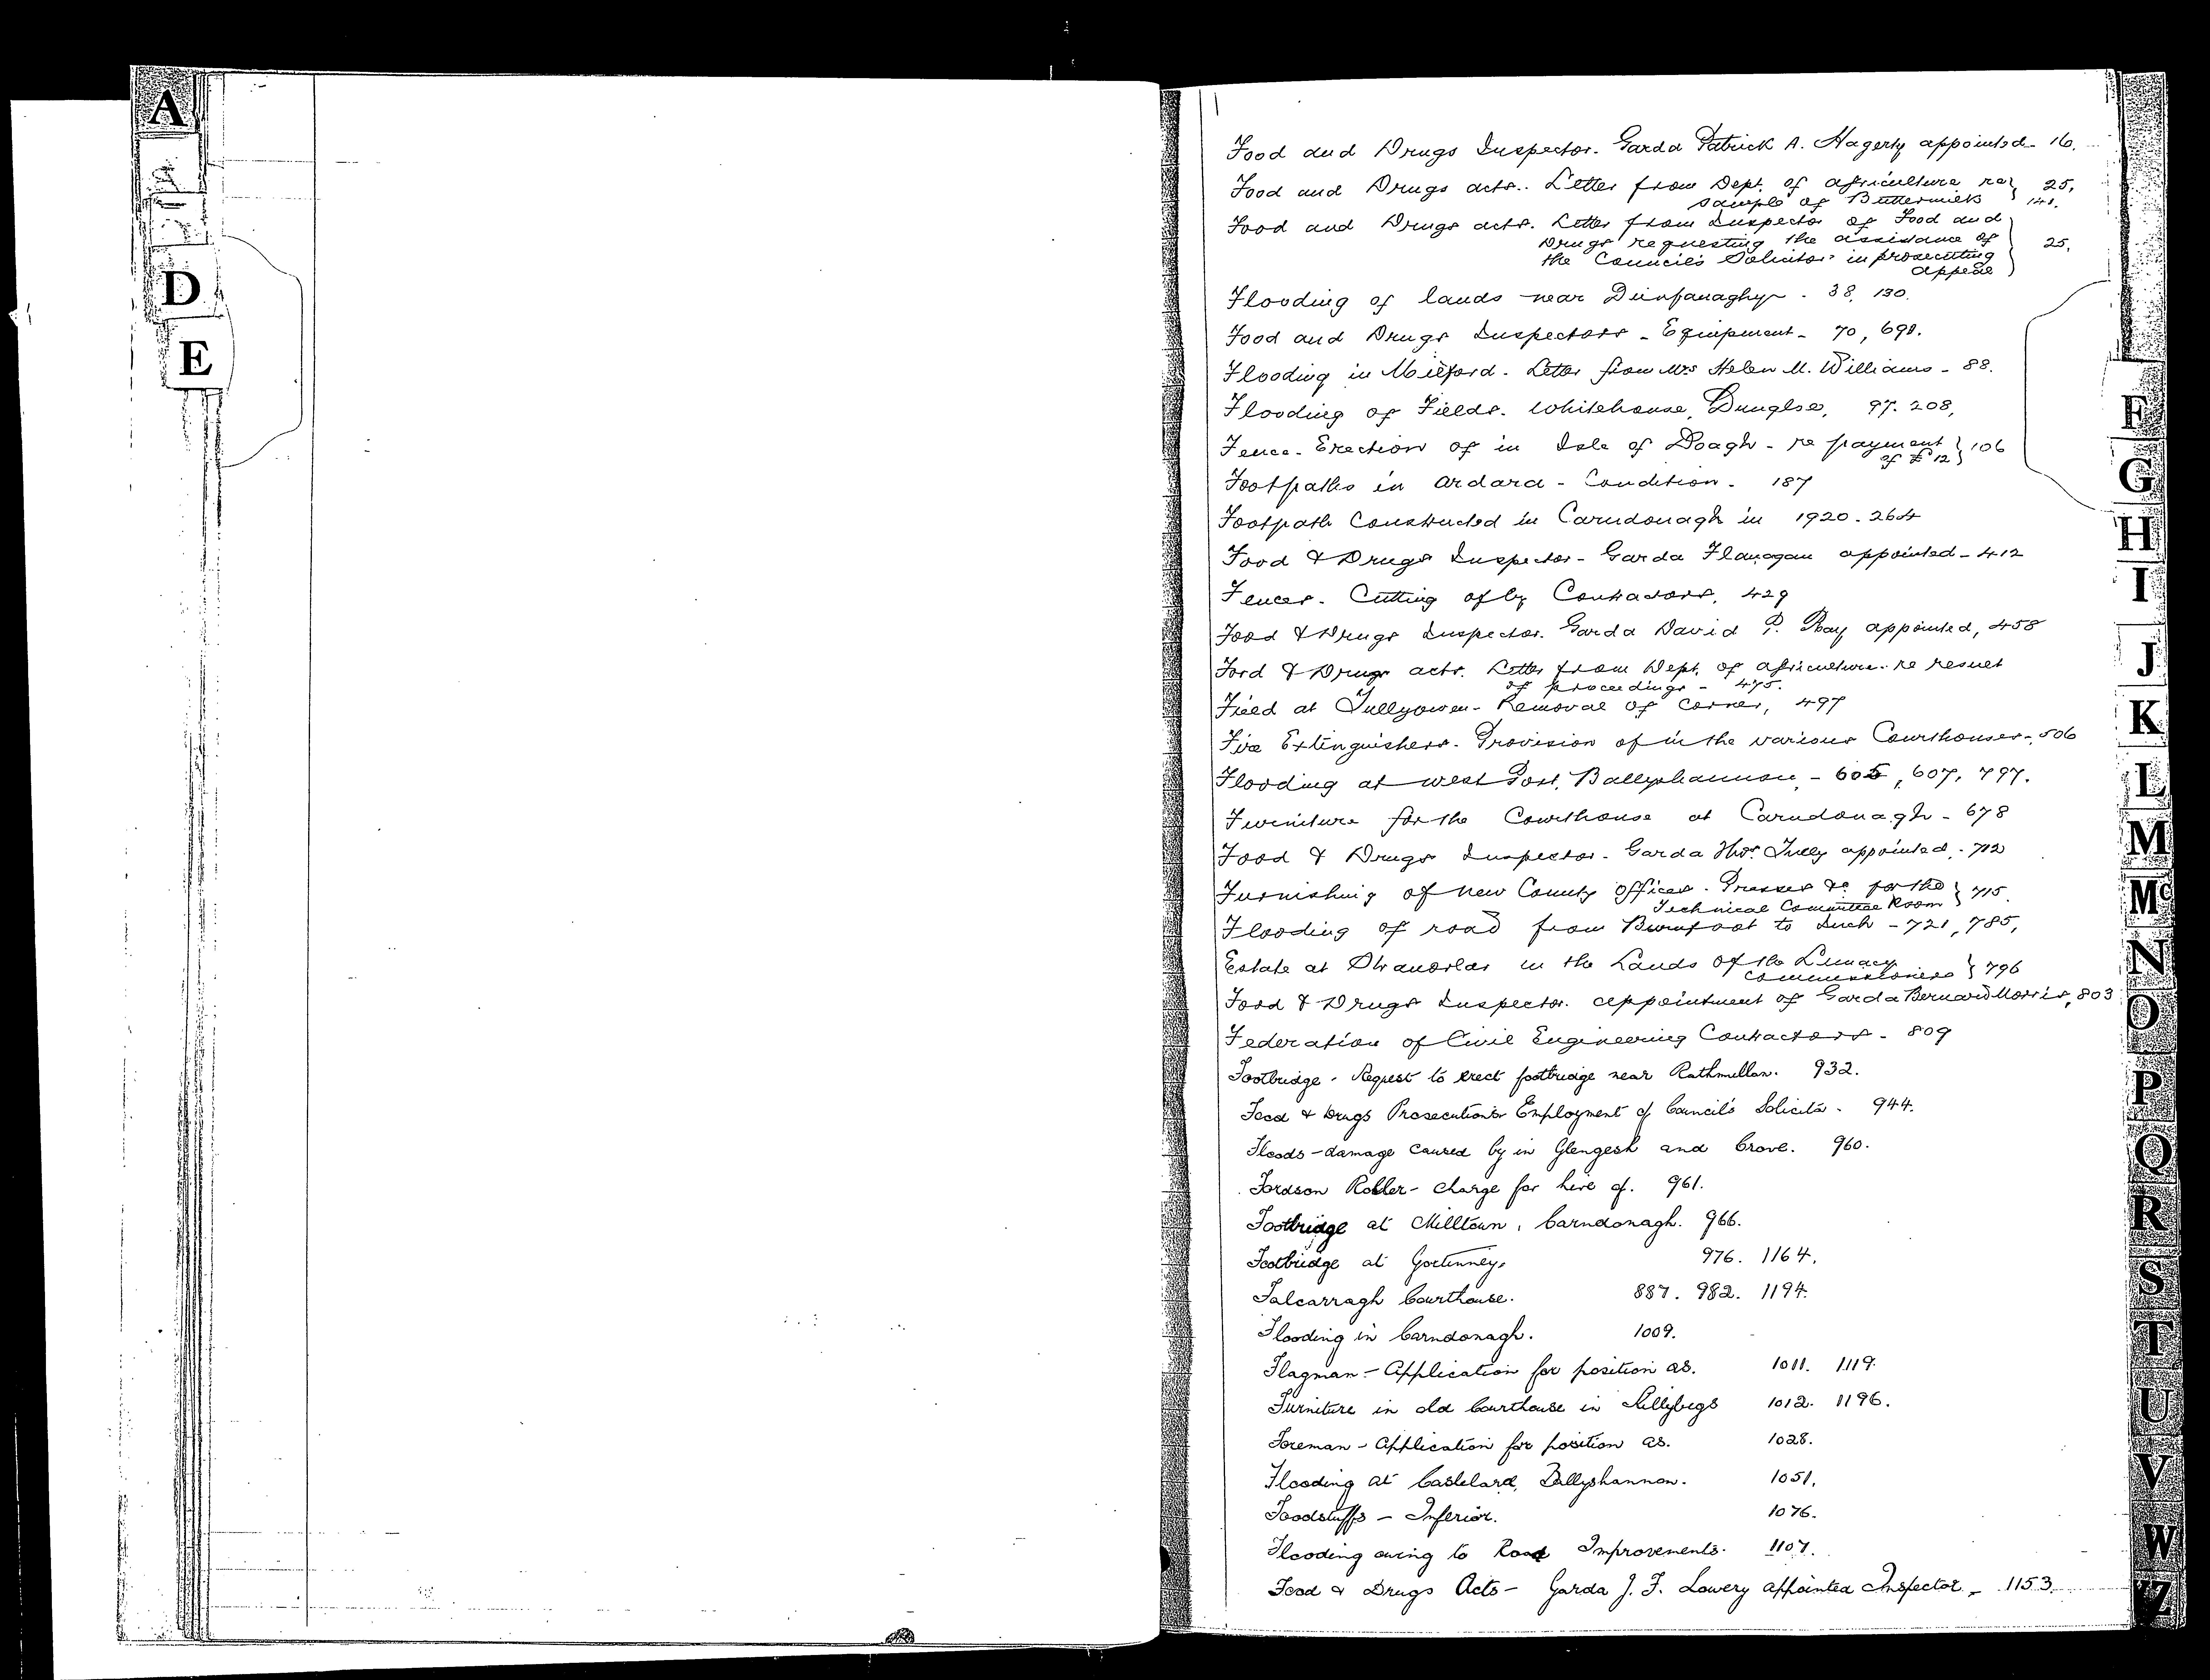 A
D
E
Food and Drugs Inspector. Garda Patrick A. Hagerty appointed - 16.
Food and Drugs acts.. Letter from Dept. of agriculture re } 25,
sample of Buttermilk 141.
Food and Drugs acts. Letter from Inspector of Food and
Drugs requesting the assistance of } 25,
the Council's Solicitor in prosecuting
appeal
Flooding of lands near Dunfanaghy - 38, 130.
Food and Drugs Inspectors - Equipment - 70, 698.
Flooding in Milford. Letter from Mrs Helen M. Williams - 88.
Flooding of Fields. Whitehouse, Dungloe, 97. 208,
Fence - Erection of in Isle of Doagh - re payment } 106
of £12
Footpaths in Ardara - Condition - 187
Footpath Constructed in Carndonagh in 1920. 264
Food & Drugs Inspector - Garda Flanagan appointed - 412
Fences. Cutting of by Contractors, 429
Food & Drugs Inspector. Garda David P. Ray appointed, 458
Food & Drugs acts. Letter from Dept. of agriculture. re result
of proceedings - 475.
Field at Tullyowen - Removal of Corner, 497
Fire Extinguishers - Provision of in the various Courthouses -, 506
Flooding at West Port, Ballyshannon, - 605, 607, 797.
Furniture for the Courthouse at Carndonagh - 678
Food & Drugs Inspector. Garda Thos. Tully appointed, - 712
Furnishing of new County Offices. Presses &c for the } 715.
Technical Committee Room
Flooding of road from Burnfoot to Inch - 721, 785,
Estate at Stranorlar in the Lands of the Lunacy } 796
Commissioners
Food & Drugs Inspector. appointment of Garda Bernard Morris, 803
Federation of Civil Engineering Contractors - 809
Footbridge - Request to erect footbridge near Rathmullan. 932.
Food & Drugs Prosecutions Employment of Council's Solicitor. 944.
Floods - damage caused by in Glengesh and Crove. 960.
Fordson Roller - charge for hire of. 961.
Footbridge at Milltown, Carndonagh. 966.
Footbridge at Gortinney. 976. 1164.
Falcarragh Courthouse. 887. 982. 1194.
Flooding in Carndonagh. 1009.
Flagman - Application for position as. 1011. 1119.
Furniture in old Courthouse in Killybegs 1012. 1196.
Foreman - Application for position as. 1028.
Flooding at Castlelard, Ballyshannon. 1051.
Foodstuffs - Inferior. 1076.
Flooding owing to Road Improvements. 1107.
Food & Drugs Acts - Garda J. F. Lowery appointed Inspector - 1153.
F
G
H
I
J
K
L
M
Mc
N
O
P
Q
R
S
T
U
V
W
YZ